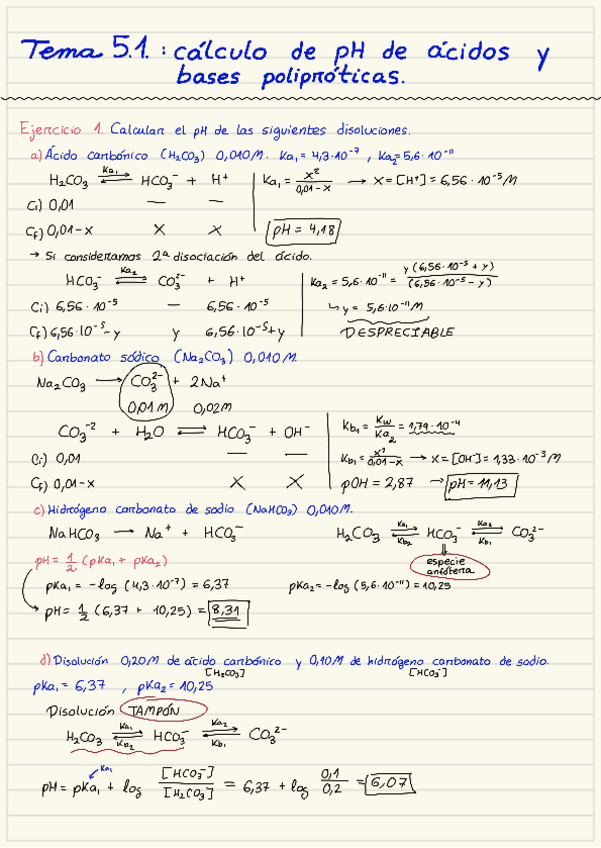 Tema 5.1. : cálculo de pH de ácidos y
bases polipróticas.
Ejercicio 1. Calcular el pH de las siguientes disoluciones.
a) Ácido carbónico (H₂CO₃) 0,010M. Ka₁ = 4,3·10⁻⁷ , Ka₂ = 5,6·10⁻¹¹
H₂CO₃ ⇌ (Ka₁) HCO₃⁻ + H⁺ | Ka₁ = x²/(0,01-x) → x = [H⁺] = 6,56·10⁻⁵ M
Ci) 0,01 — —
Cf) 0,01-x x x pH = 4,18
→ Si consideramos 2ª disociación del ácido.
HCO₃⁻ ⇌ (Ka₂) CO₃²⁻ + H⁺ | Ka₂ = 5,6·10⁻¹¹ = y (6,56·10⁻⁵ + y)/(6,56·10⁻⁵ - y)
Ci) 6,56·10⁻⁵ — 6,56·10⁻⁵ ↳ y = 5,6·10⁻¹¹ M
Cf) 6,56·10⁻⁵-y y 6,56·10⁻⁵+y DESPRECIABLE
b) Carbonato sódico (Na₂CO₃) 0,010M.
Na₂CO₃ → CO₃²⁻ + 2Na⁺
0,01M 0,02M
CO₃⁻² + H₂O ⇌ HCO₃⁻ + OH⁻ | Kb₁ = Kw/Ka₂ = 1,79·10⁻⁴
Ci) 0,01 — — Kb₁ = x²/(0,01-x) → x = [OH⁻] = 1,33·10⁻³ M
Cf) 0,01-x x x pOH = 2,87 → pH = 11,13
c) Hidrógeno carbonato de sodio (NaHCO₃) 0,010M.
NaHCO₃ → Na⁺ + HCO₃⁻ H₂CO₃ ⇌ (Ka₁, Kb₂) HCO₃⁻ ⇌ (Ka₂, Kb₁) CO₃²⁻
pH = 1/2 (pKa₁ + pKa₂) especie
anfótera
pKa₁ = -log (4,3·10⁻⁷) = 6,37 pKa₂ = -log (5,6·10⁻¹¹) = 10,25
pH = 1/2 (6,37 + 10,25) = 8,31
d) Disolución 0,20M de ácido carbónico y 0,10M de hidrógeno carbonato de sodio.
[H₂CO₃] [HCO₃⁻]
pKa₁ = 6,37 , pKa₂ = 10,25
Disolución TAMPÓN
H₂CO₃ ⇌ (Ka₁, Kb₂) HCO₃⁻ ⇌ (Ka₂, Kb₁) CO₃²⁻
Ka₁
pH = pKa₁ + log [HCO₃⁻]/[H₂CO₃] = 6,37 + log 0,1/0,2 = 6,07